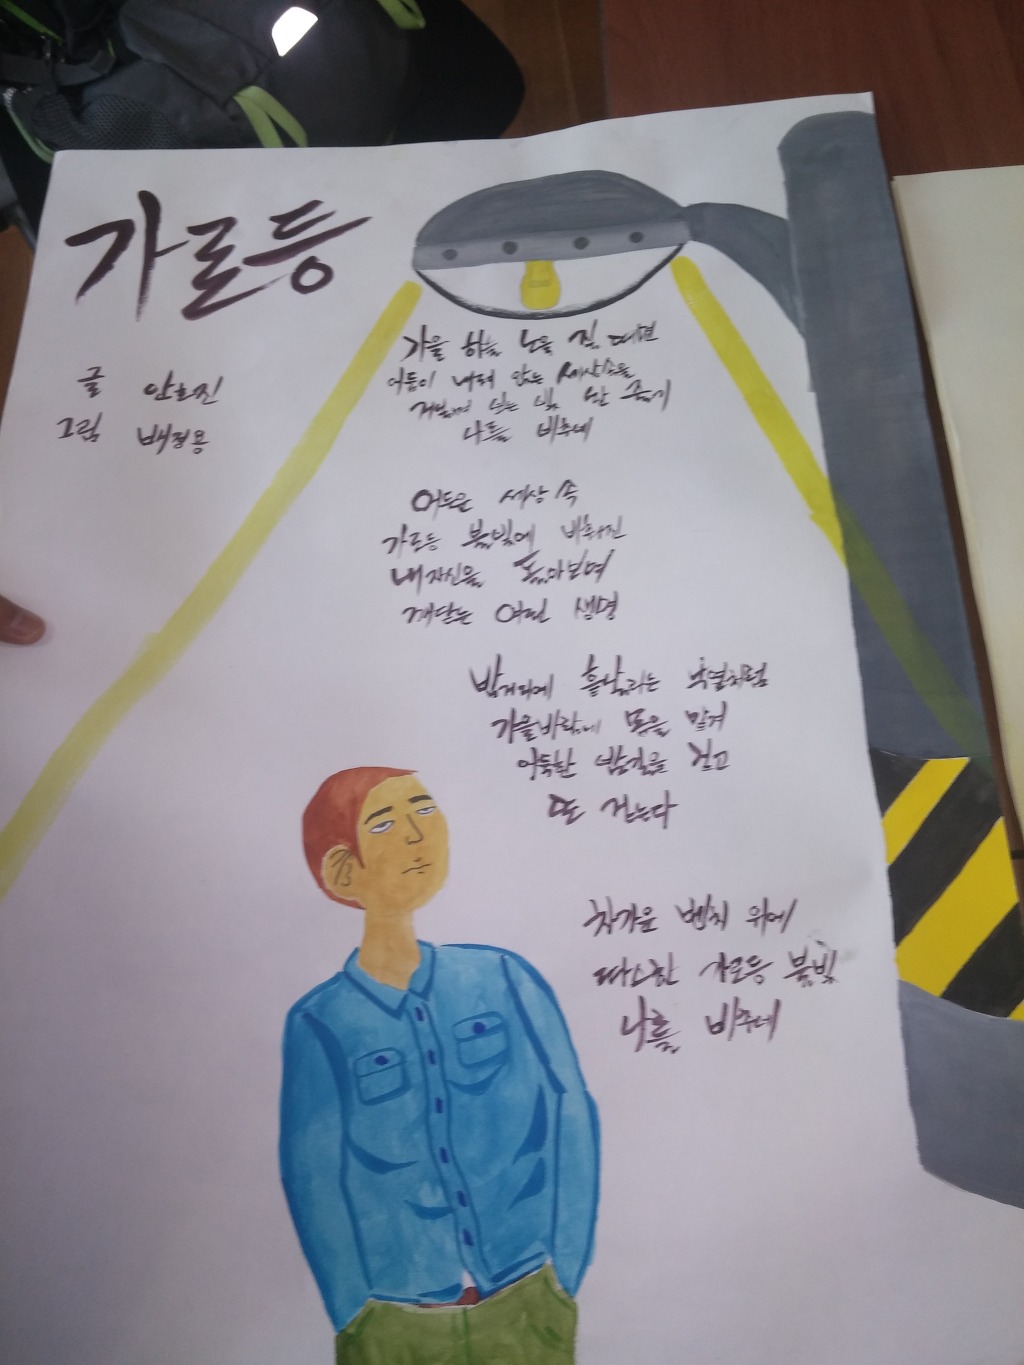 가로등
글 안효진
그림 배정용
가을 하늘 노을 질 때면
어둠이 내려 앉는 세상 속을
나를 비추네
어두운 세상 속
가로등 불빛에 비춰진
내 자신을 돌아보며
깨닫는 여린 생명
밤거리에 흩날리는 낙엽처럼
가을바람에 몸을 맡겨
어둑한 밤길을 걷고
또 걷는다
차가운 벤치 위에
따스한 가로등 불빛
나를 비추네